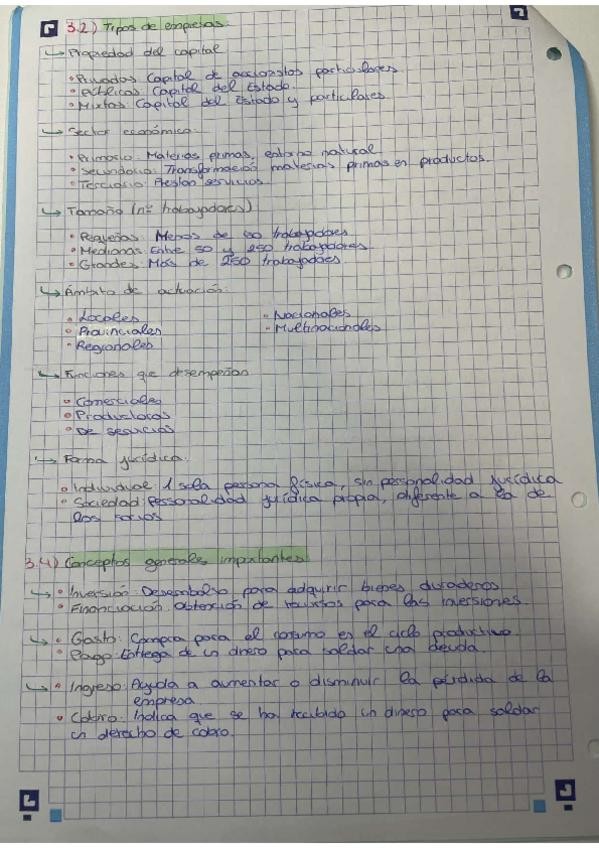 3.2) Tipos de empresas:
↳ Propiedad del capital
• Privadas Capital de accionistas particulares
• Públicas Capital del Estado.
• Mixtas: Capital del Estado y particulares
↳ Sector económico:
• Primario: Materias primas, entorno natural
• Secundario: Transformación materias primas en productos.
• Terciario: Prestan servicios
↳ Tamaño (nº trabajadores)
• Pequeñas: Menos de 50 trabajadores
• Medianas: Entre 50 y 250 trabajadores
• Grandes: Más de 250 trabajadores
↳ Ámbito de actuación:
• Locales
• Provinciales
• Regionales
• Nacionales
• Multinacionales
↳ Funciones que desempeñan
• Comerciales
• Productoras
• De servicios
↳ Forma jurídica:
• Individual: 1 sola persona física, sin personalidad jurídica
• Sociedad: Personalidad jurídica propia, diferente a la de
los socios
3.4) Conceptos generales importantes
↳ • Inversión: Desembolso para adquirir bienes duraderos
• Financiación: Obtención de recursos para las inversiones.
↳ • Gasto: Compra para el consumo en el ciclo productivo.
• Pago: Entrega de un dinero para saldar una deuda.
↳ • Ingreso: Ayuda a aumentar o disminuir la pérdida de la
empresa.
• Cobro: Indica que se ha recibido un dinero para saldar
un derecho de cobro.